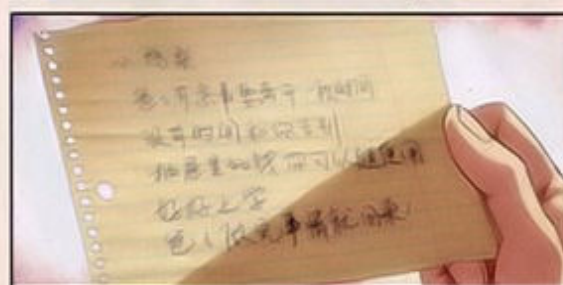 爸爸有急事要离开一段时间
没有时间和你告别
抽屉里的钱你可以随便用
好好上学
爸爸做完事情就回来